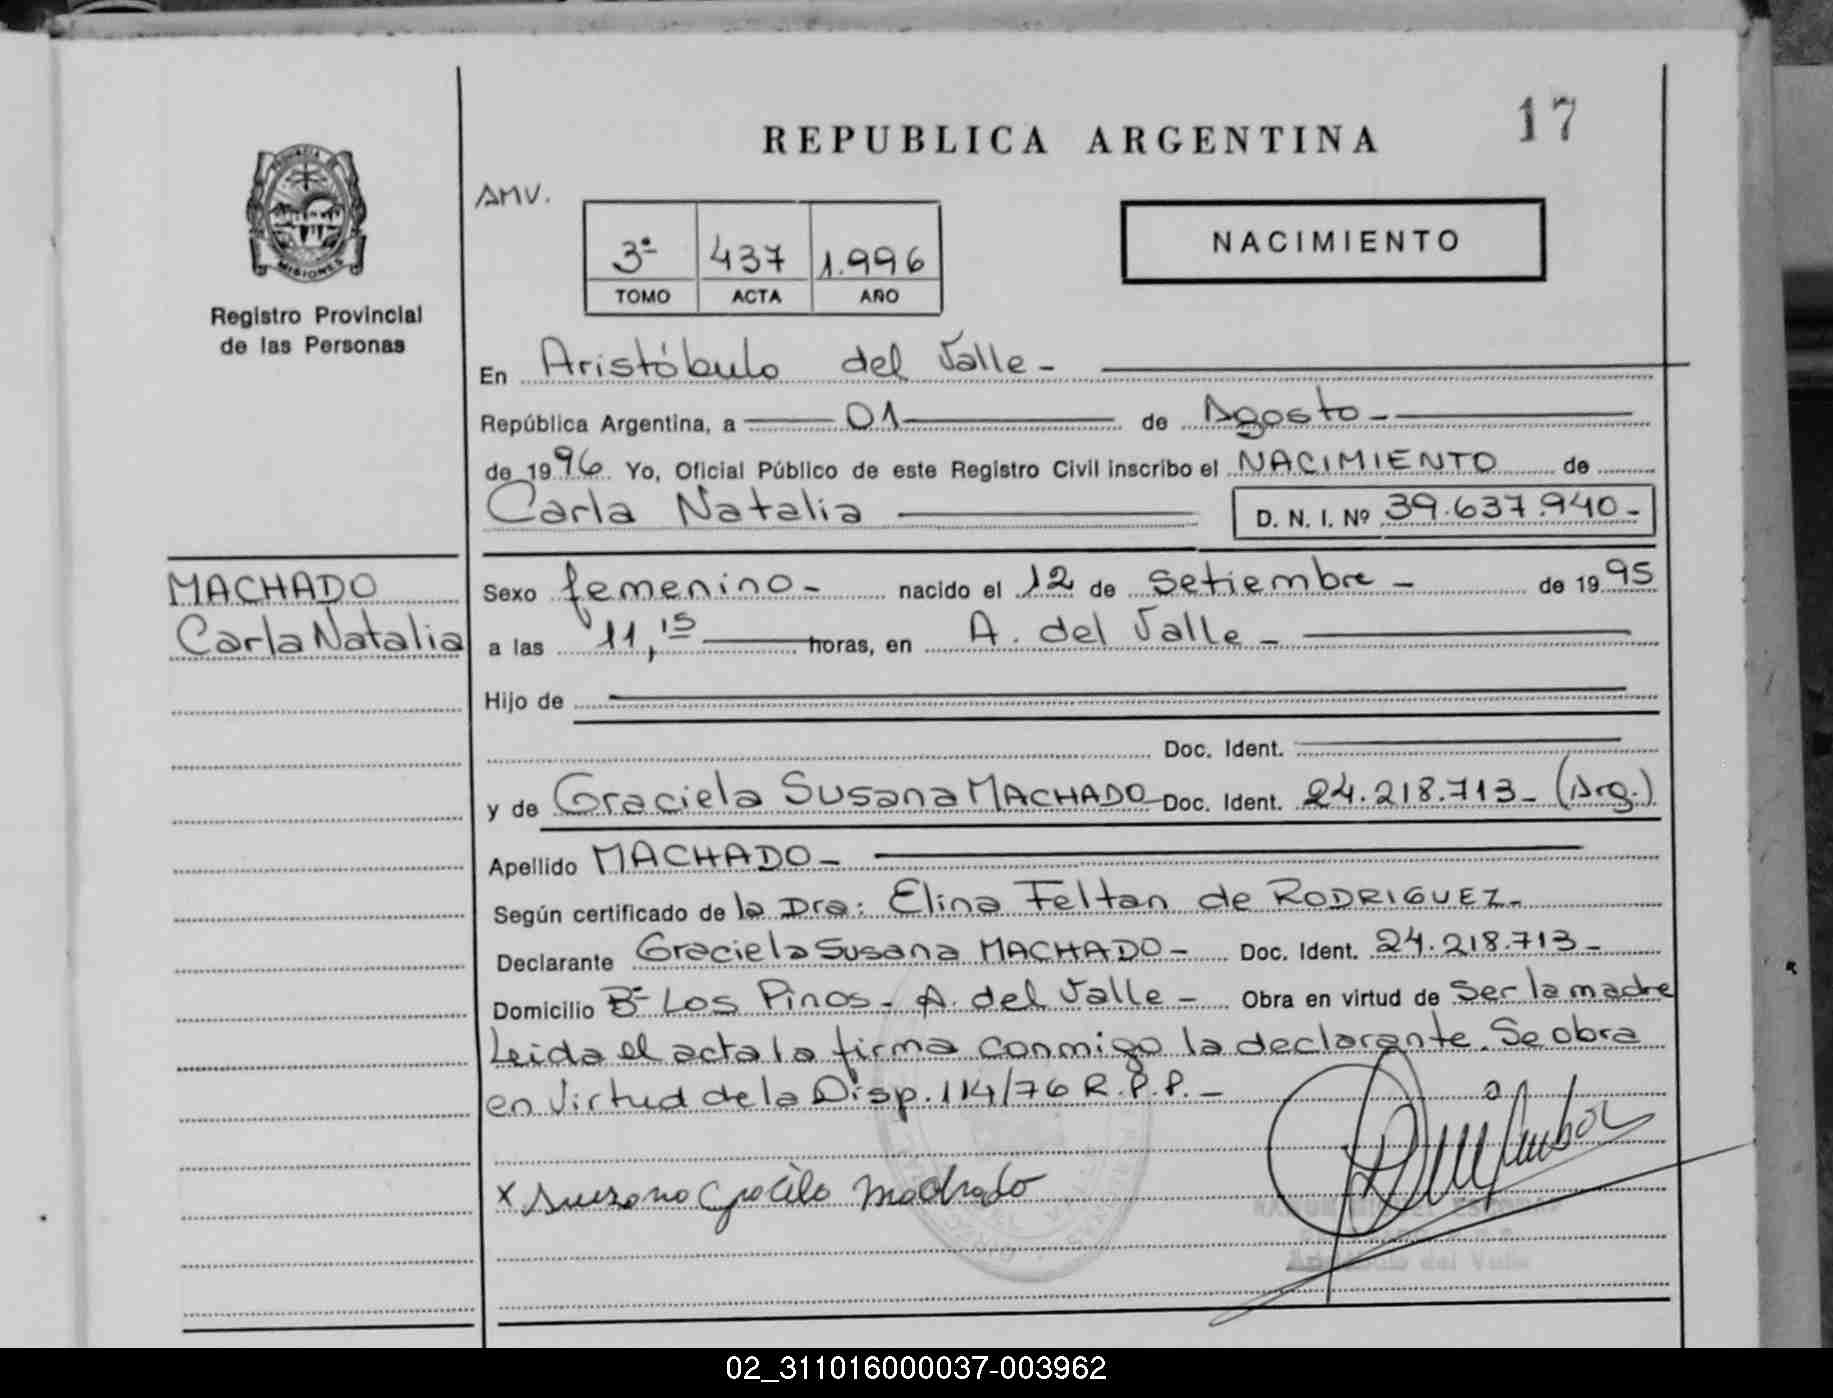 17
REPUBLICA ARGENTINA
PROVINCIA DE
MISIONES
Registro Provincial
de las Personas
AMV.
3ª 437 1.996
TOMO ACTA AÑO
NACIMIENTO
En Aristóbulo del Valle -
República Argentina, a 01 de Agosto -
de 1996. Yo, Oficial Público de este Registro Civil inscribo el NACIMIENTO de
Carla Natalia D. N. I. Nº 39.637.940-
MACHADO
Carla Natalia
Sexo femenino - nacido el 12 de Setiembre - de 1995
a las 11,15 horas, en A. del Valle -
Hijo de
Doc. Ident.
y de Graciela Susana MACHADO Doc. Ident. 24.218.713- (Arg.)
Apellido MACHADO -
Según certificado de la Dra: Elina Feltan de RODRIGUEZ -
Declarante Graciela Susana MACHADO - Doc. Ident. 24.218.713 -
Domicilio Bº Los Pinos - A. del Valle - Obra en virtud de Ser la madre
Leida el acta la firma conmigo la declarante. Se obra
en virtud de la Disp. 114/76 R.P.P. -
x Susana Graciela Machado
del Valle
02_311016000037-003962